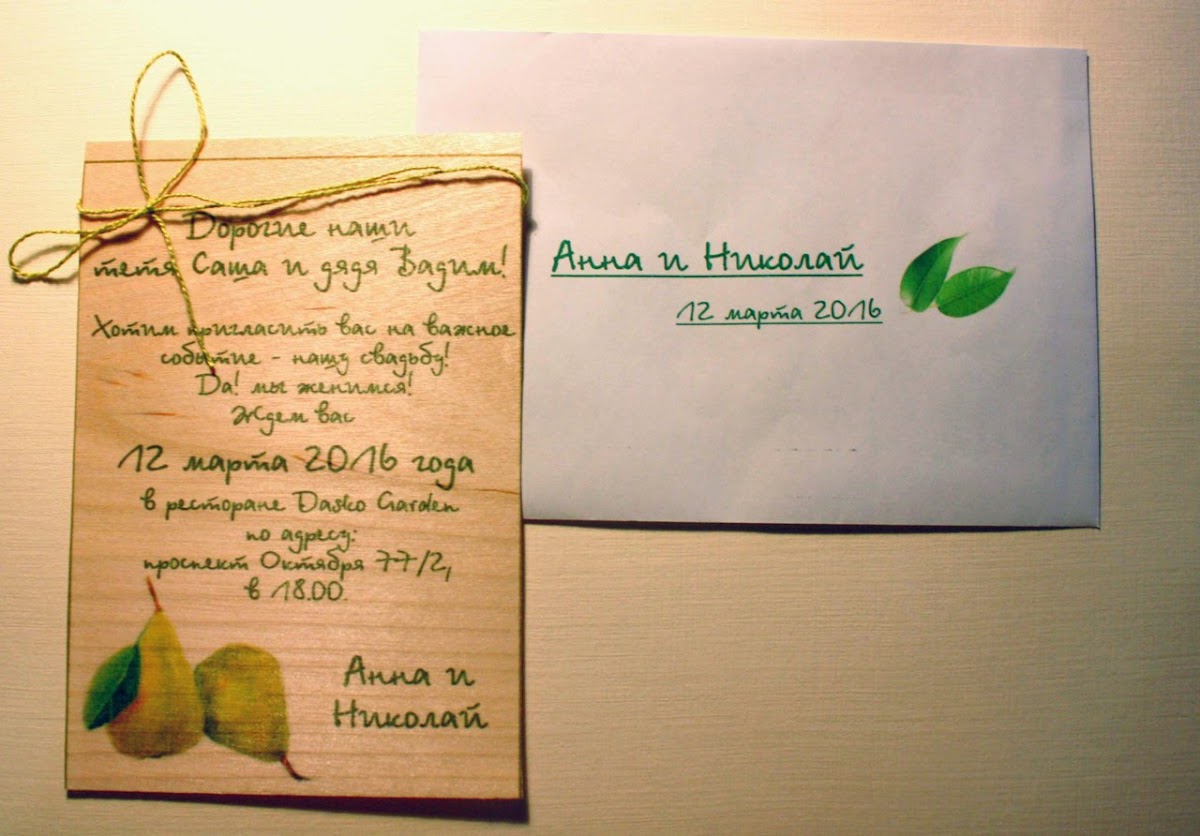 Дорогие наши
тетя Саша и дядя Вадим!
Хотим пригласить вас на важное
событие - нашу свадьбу!
Да! мы женимся!
Ждем вас
12 марта 2016 года
в ресторане Dasko Garden
по адресу:
проспект Октября 77/2,
в 18.00.
Анна и
Николай
Анна и Николай
12 марта 2016